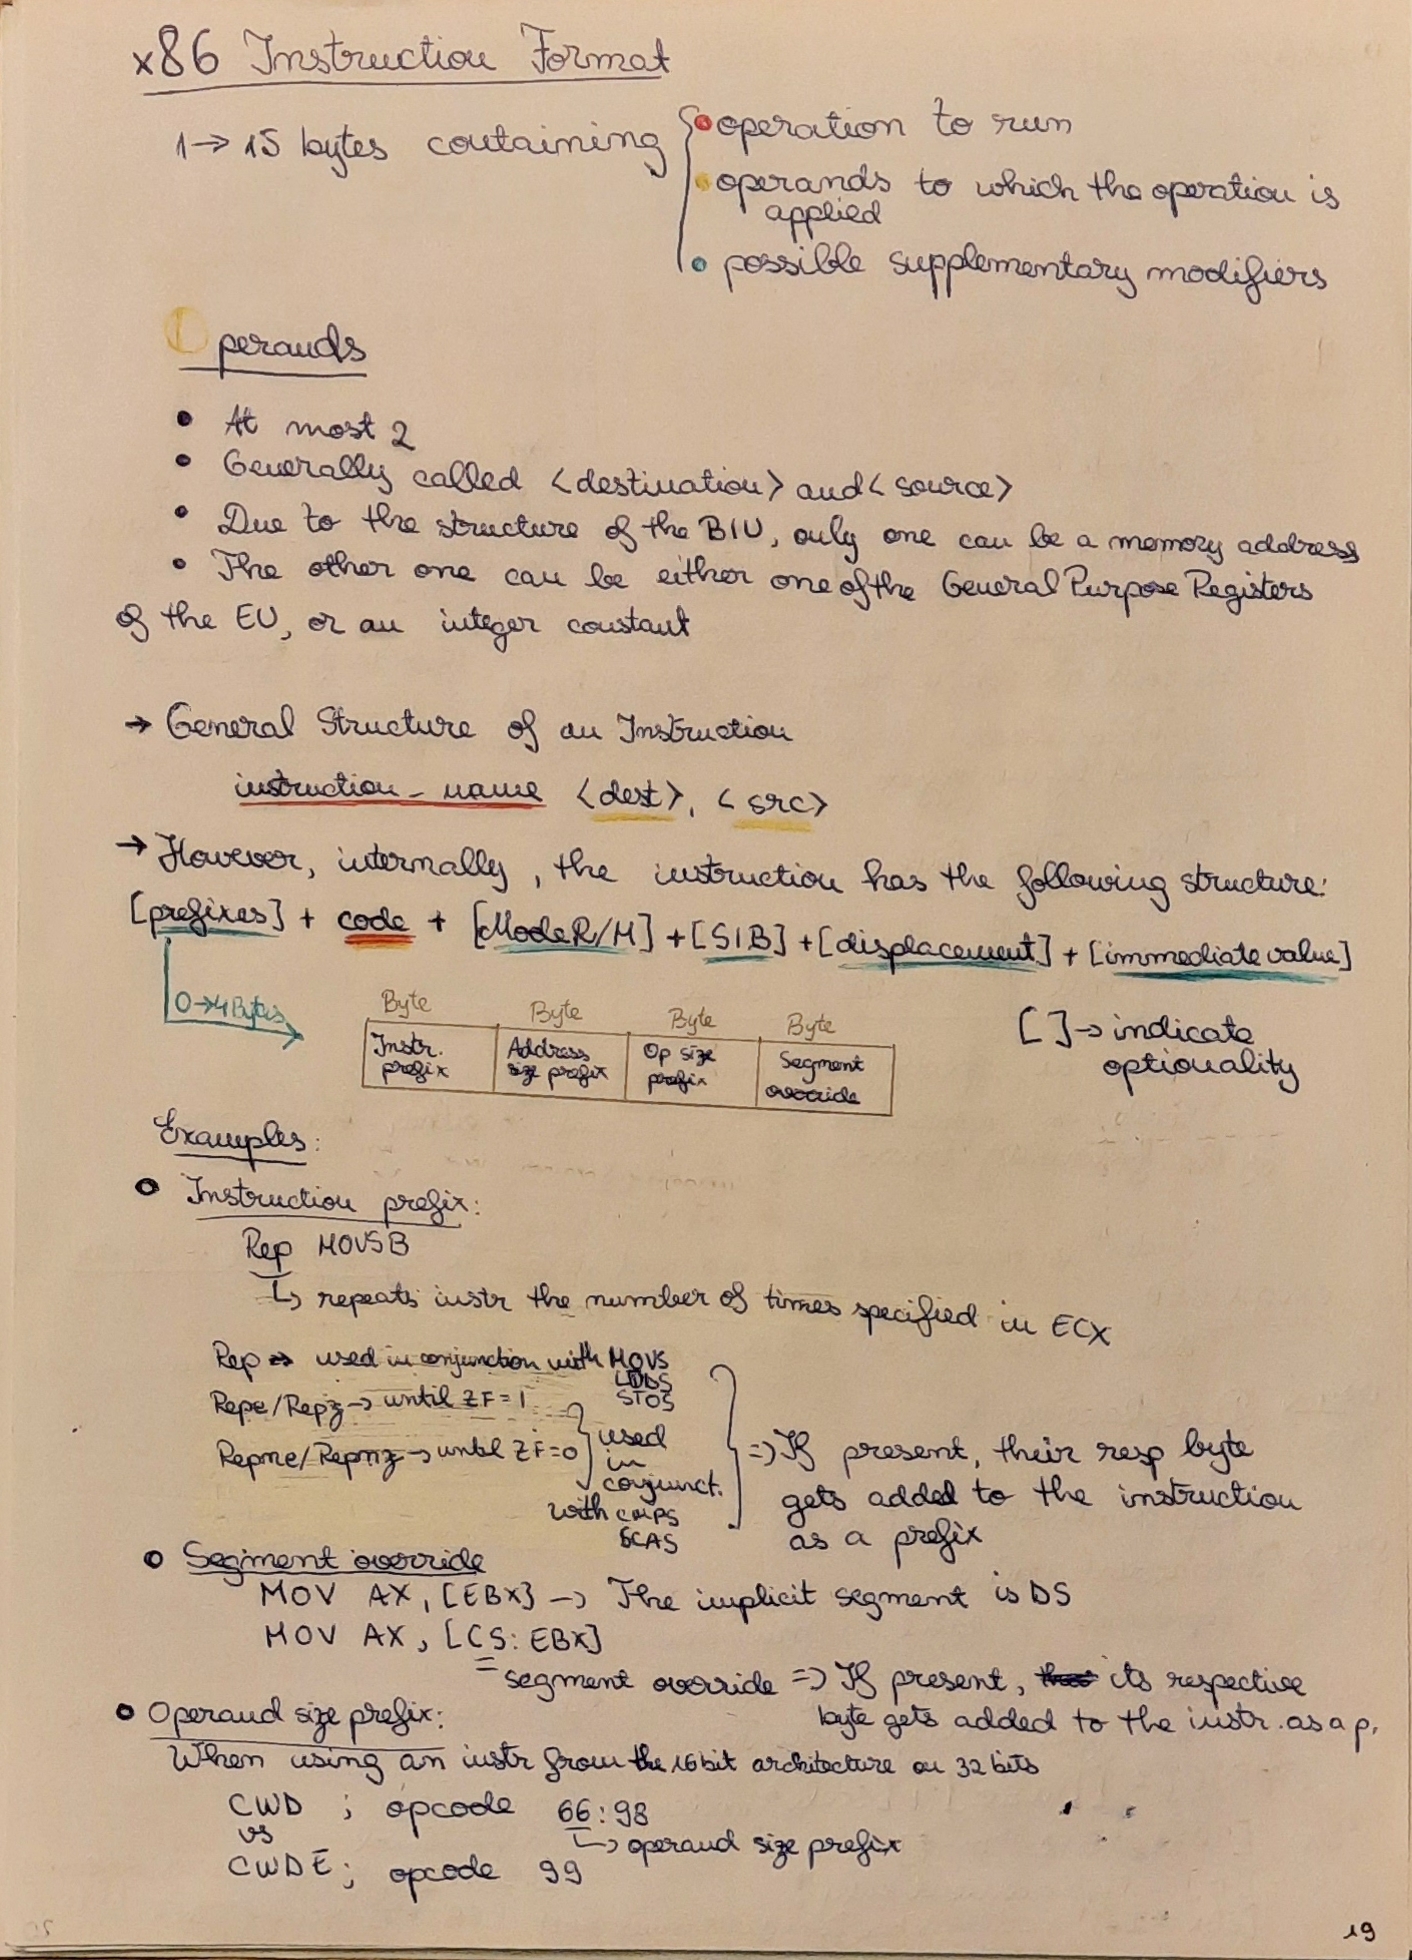 x86 Instruction Format
1→15 bytes containing
operation to run
operands to which the operation is
applied
possible supplementary modifiers
Operands
• At most 2
• Generally called <destination> and <source>
• Due to the structure of the BIU, only one can be a memory address
• The other one can be either one of the General Purpose Registers
of the EU, or an integer constant
→ General Structure of an Instruction
instruction_name <dest>, <src>
→ However, internally, the instruction has the following structure:
[prefixes] + code + [ModeR/M] + [SIB] + [displacement] + [immediate value]
0→4 Bytes
Byte Byte Byte Byte
Instr. prefix
Address size prefix
Op size prefix
Segment override
[ ] → indicate
optionality
Examples:
Instruction prefix:
Rep MOVSB
↳ repeats instr the number of times specified in ECX
Rep → used in conjunction with MOVS
LODS
STOS
Repe/Repz → until ZF=1
Repne/Repnz → until ZF=0
used
in
conjunct.
with CMPS
SCAS
=> If present, their resp byte
gets added to the instruction
as a prefix
Segment override
MOV AX, [EBX] → The implicit segment is DS
MOV AX, [CS: EBX]
segment override => If present, its respective
byte gets added to the instr. as a p.
Operand size prefix:
When using an instr from the 16bit architecture on 32 bits
CWD ; opcode 66:98
↳ operand size prefix
vs
CWDE ; opcode 99
19